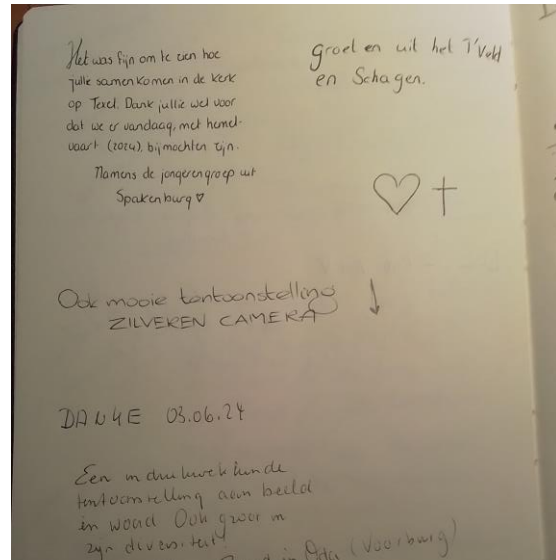 Het was fijn om te zien hoe
jullie samen komen in de kerk
op Texel. Dank jullie wel voor
dat we er vandaag, met hemel-
vaart (2024), bij mochten zijn.
Namens de jongerengroep uit
Spakenburg
groeten uit het T'Veld
en Schagen.
Ook mooie tentoonstelling
ZILVEREN CAMERA
DANKE 03.06.24
Een indrukwekkende
tentoonstelling aan beeld
en woord Ook groot in
zijn diversiteit
(Voorburg)